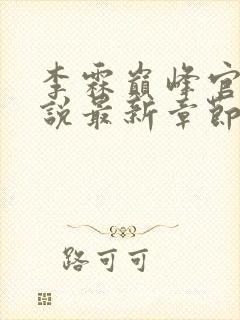 李霖巅峰官
说最新章節
路可可